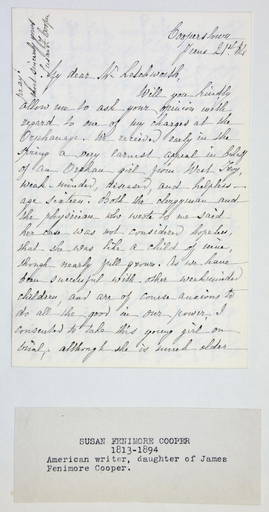 Cooperstown
June 21st
My dear Mr
Will you kindly
allow me to ask your opinion with
regard to one of my charges at the
Orphanage. We received early in the
Spring a very earnest appeal in behalf
of an Orphan girl from West Troy,
weak minded, diseased, and helpless
age sixteen. Both the clergyman and
the physician who wrote to me said
her case was not considered hopeless,
that she was like a child of nine,
though nearly full grown. As we have
been successful with other weakminded
children, and are of course anxious to
do all the good in our power, I
consented to take this young girl on
trial, although she is much older
SUSAN FENIMORE COOPER
1813-1894
American writer, daughter of James
Fenimore Cooper.